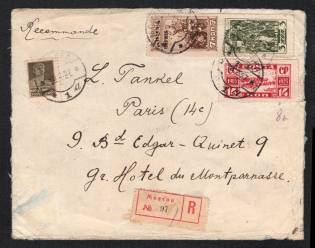 Recommandé
L. Tankel
Paris (14e)
9. Bd Edgar-Quinet 9
Gr. Hotel du Montparnasse.
Moscou
R
№ 97
СР
14 14